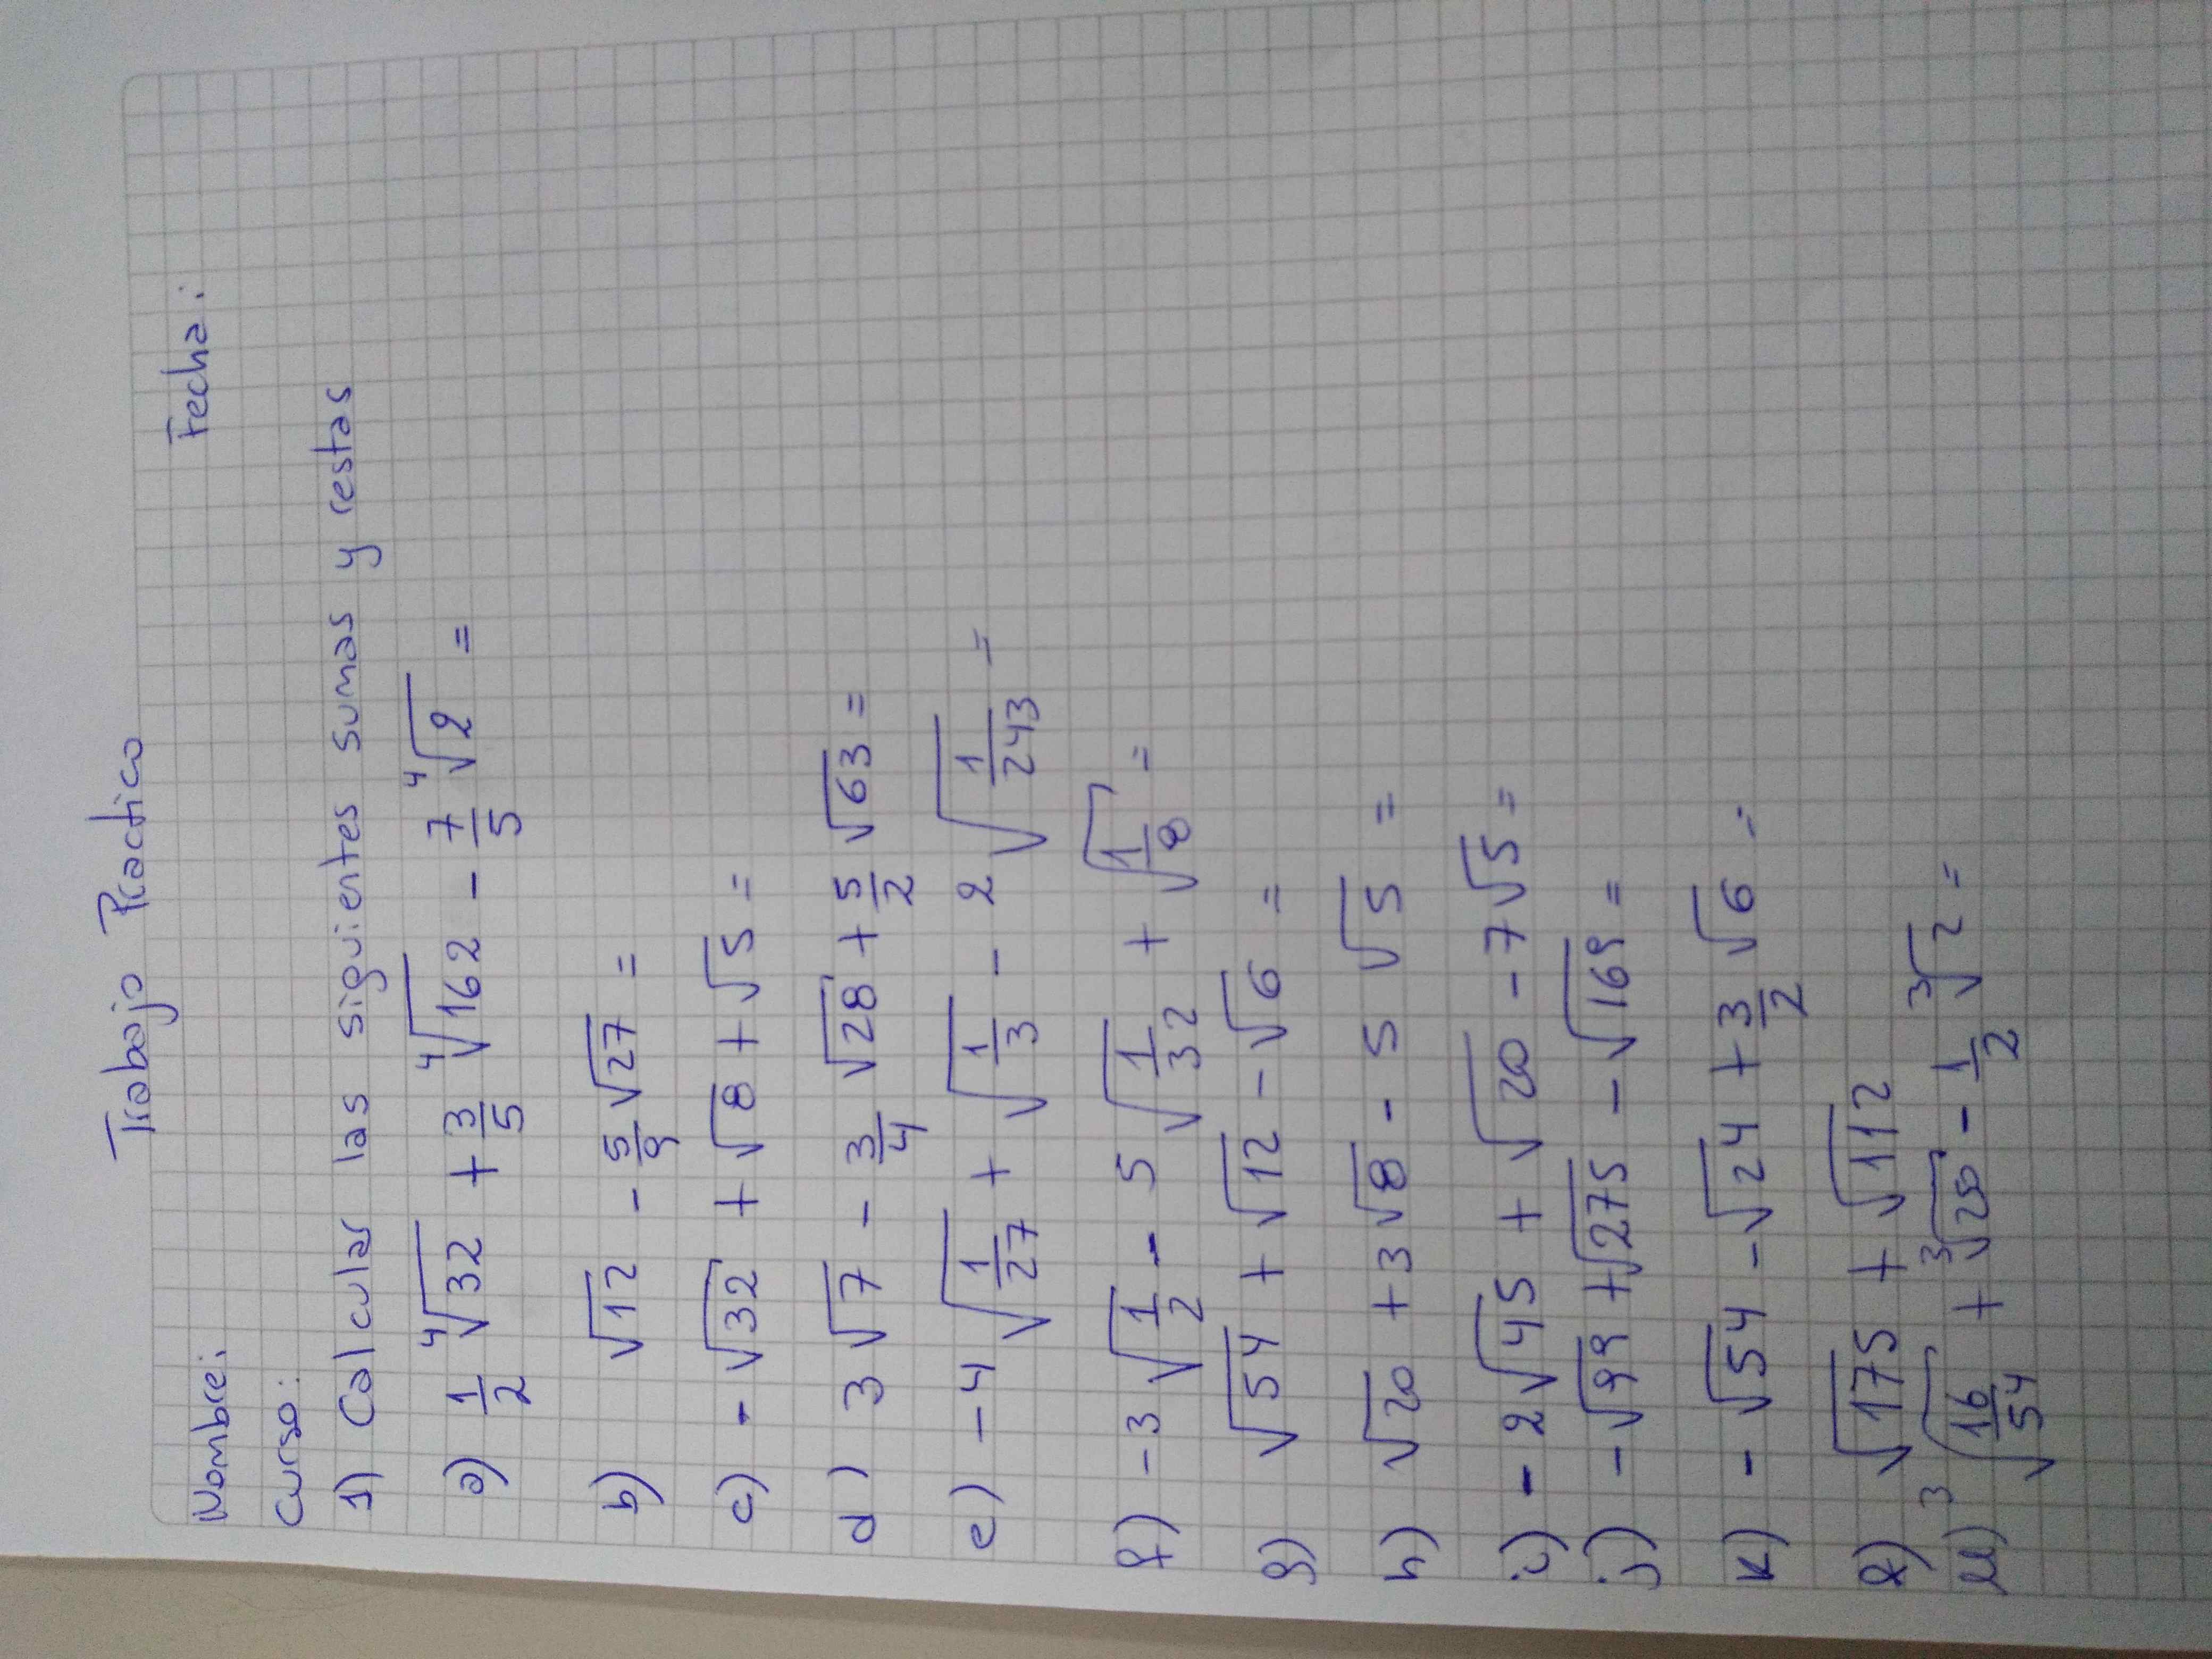 Trabajo Practico
Nombre: Fecha:
Curso:
1) Calcular las siguientes sumas y restas
a) 1/2 ⁴√32 + 3/5 ⁴√162 - 7/5 ⁴√2 =
b) √12 - 5/9 √27 =
c) - √32 + √8 + √5 =
d) 3 √7 - 3/4 √28 + 5/2 √63 =
e) -4 √(1/27) + √(1/3) - 2 √(1/243) =
f) -3 √(1/2) - 5 √(1/32) + √(1/8) =
g) √54 + √12 - √6 =
h) √20 + 3 √8 - 5 √5 =
i) - 2 √45 + √20 - 7 √5 =
j) - √99 + √275 - √169 =
k) - √54 - √24 + 3/2 √6 =
l) √175 + √112
m) ³√(16/54) + ³√250 - 1/2 ³√2 =